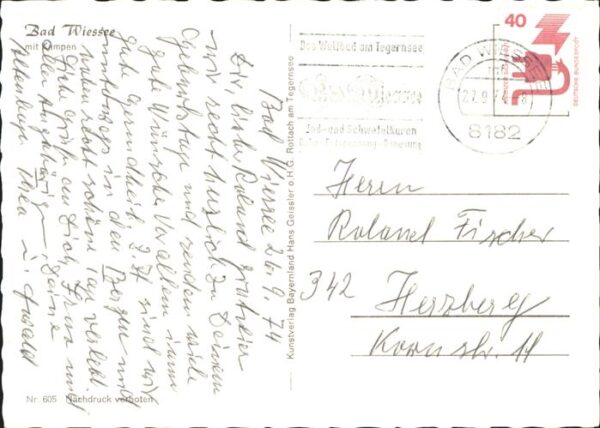 Bad Wiessee
mit Kampen
Bad Wiessee 26.9.74
Dir, lieber Roland gratulieren
wir recht herzlich zu Deinem
Geburtstage und senden viele
gute Wünsche vor allem immer
gute Gesundheit. Z. Zt. sind wir
unterwegs in den Bergen und
haben schöne verlebt.
Dich, und
allen Angehörigen, Deine
Thea u. Ewald
Nr. 605 Nachdruck verboten
Kunstverlag Bayernland Hans Geissler o.H.G. Rottach am Tegernsee
Das Weltbad am Tegernsee
Bad Wiessee
Jod- und Schwefelkuren
BAD WIESSEE
27.9.74
8182
40
DEUTSCHE BUNDESPOST
Herrn
Roland Fischer
342 Herzberg
Kornstr. 11